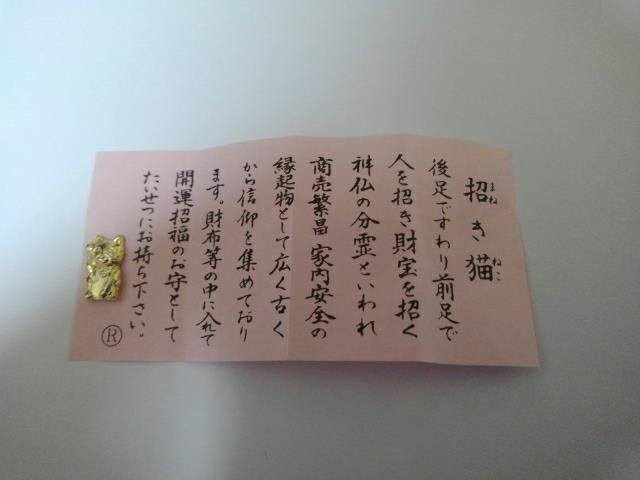 招き猫
まね
ねこ
後足ですわり前足で
人を招き財宝を招く
神仏の分霊といわれ
商売繁昌 家内安全の
縁起物として広く古く
から信仰を集めており
ます。財布等の中に入れて
開運招福のお守として
たいせつにお持ち下さい。
Ⓡ